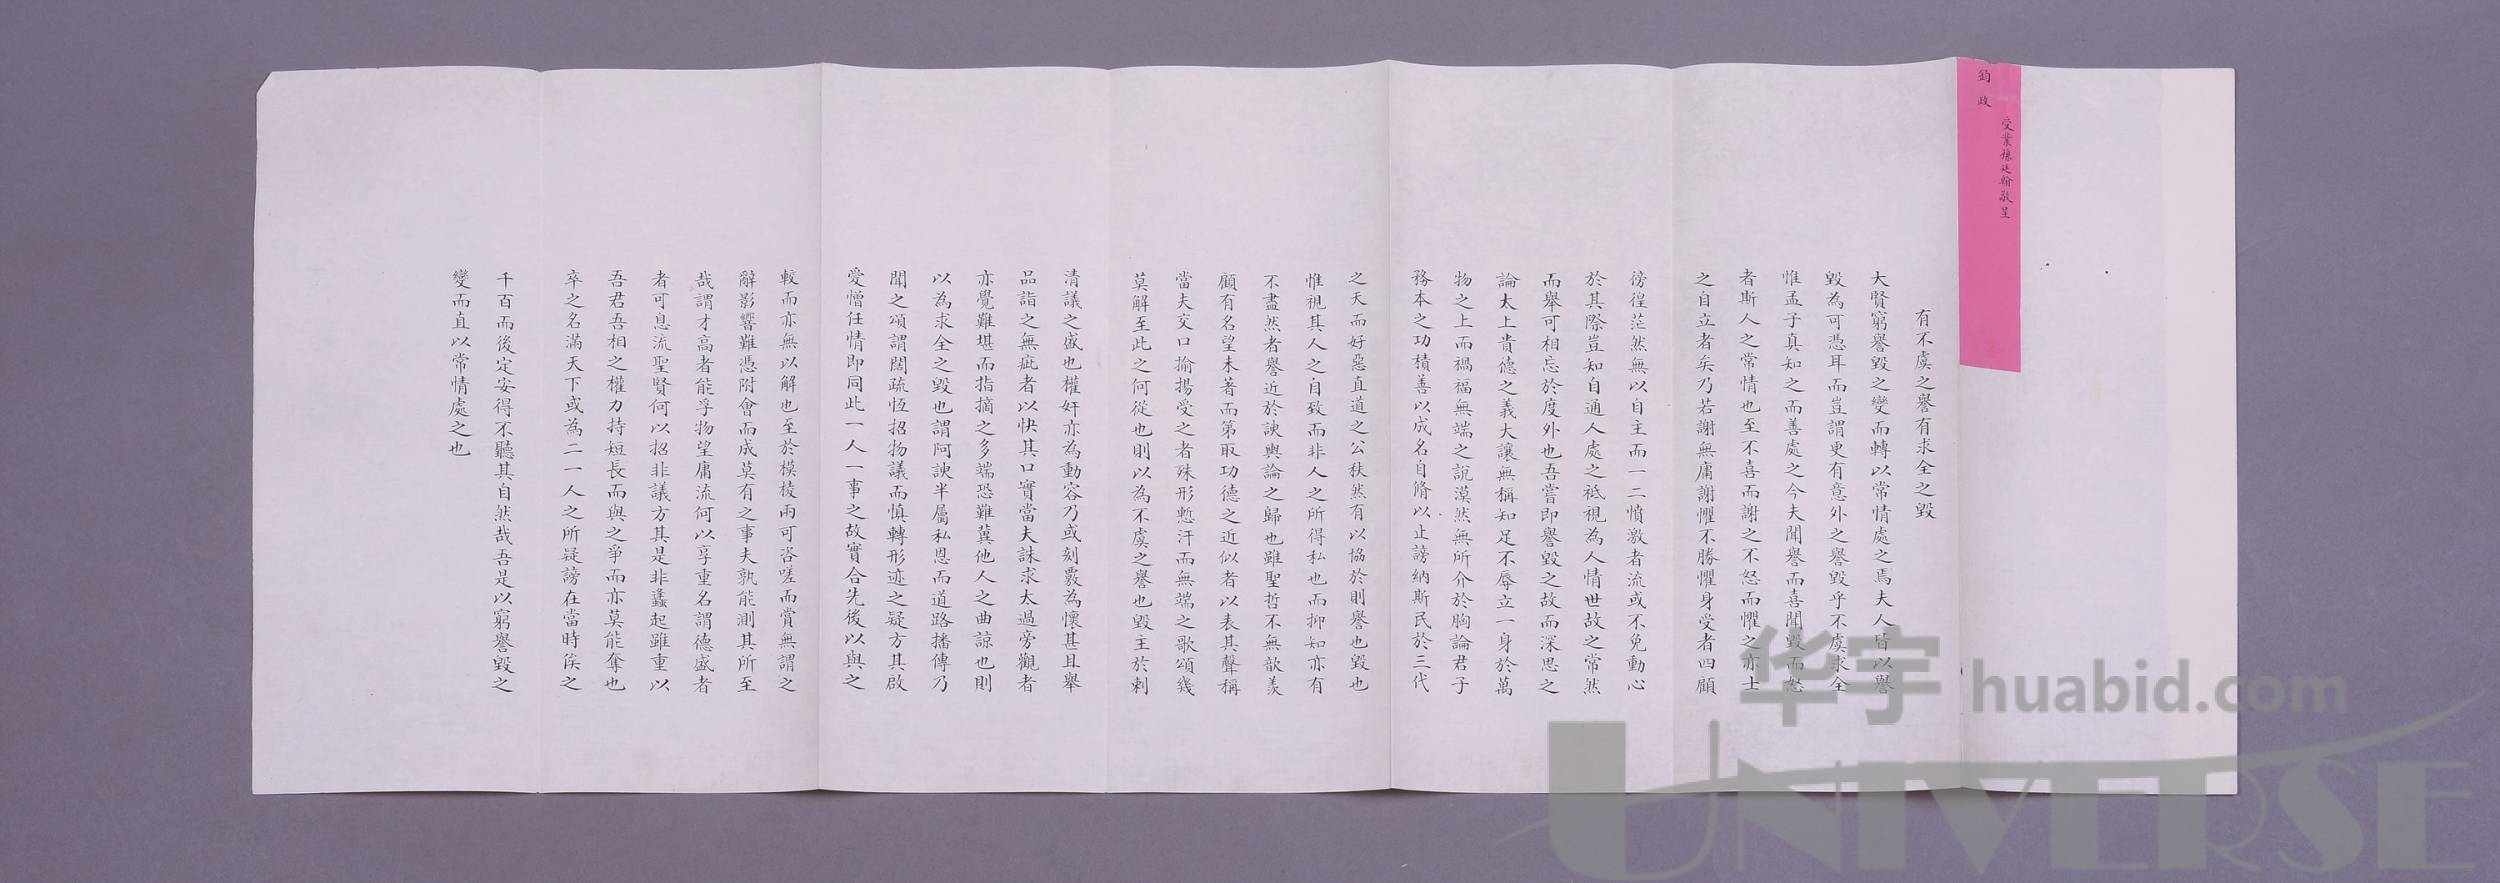 鈞政
受業孫廷翰敬呈
有不虞之譽有求全之毀
大賢窮譽毀之變而轉以常情處之焉夫人皆以譽
毀為可憑耳而豈謂更有意外之譽毀乎不虞求全
惟孟子真知之而善處之今夫聞譽而喜聞毀而怒
者斯人之常情也至不喜而謝之不怒而懼之亦士
之自立者矣乃若謝無庸謝懼不勝懼身受者四顧
徬徨茫然無以自主而一二憤激者流或不免動心
於其際豈知自通人處之祗視為人情世故之常然
而舉可相忘於度外也吾嘗即譽毀之故而深思之
論太上貴德之義大讓無稱知足不辱立一身於萬
物之上而禍福無端之說漠然無所介於胸論君子
務本之功積善以成名自脩以止謗納斯民於三代
之天而好惡直道之公秩然有以協於則譽也毀也
惟視其人之自致而非人之所得私也而抑知亦有
不盡然者譽近於諛輿論之歸也雖聖哲不無歆羨
顧有名望未著而第取功德之近似者以表其聲稱
當夫交口揄揚受之者殊形慙汗而無端之歌頌幾
莫解至此之何從也則以為不虞之譽也毀主於刺
清議之盛也權奸亦為動容乃或刻覈為懷甚且舉
品詣之無疵者以快其口實當夫誅求太過旁觀者
亦覺難堪而指摘之多端恐難冀他人之曲諒也則
以為求全之毀也謂阿諛半屬私恩而道路播傳乃
聞之頌謂闊疏恆招物議而慎轉形迹之疑方其啟
愛憎任情即同此一人一事之故實合先後以與之
較而亦無以解也至於模棱兩可咨嗟而賞無謂之
辭影響難憑附會而成莫有之事夫孰能測其所至
哉謂才高者能孚物望庸流何以享重名謂德盛者
者可息流聖賢何以招非議方其是非蠭起雖重以
吾君吾相之權力持短長而與之爭而亦莫能奪也
卒之名滿天下或為二一人之所疑謗在當時俟之
千百而後定安得不聽其自然哉吾是以窮譽毀之
變而直以常情處之也
华宇 huabid.com
UNIVERSE